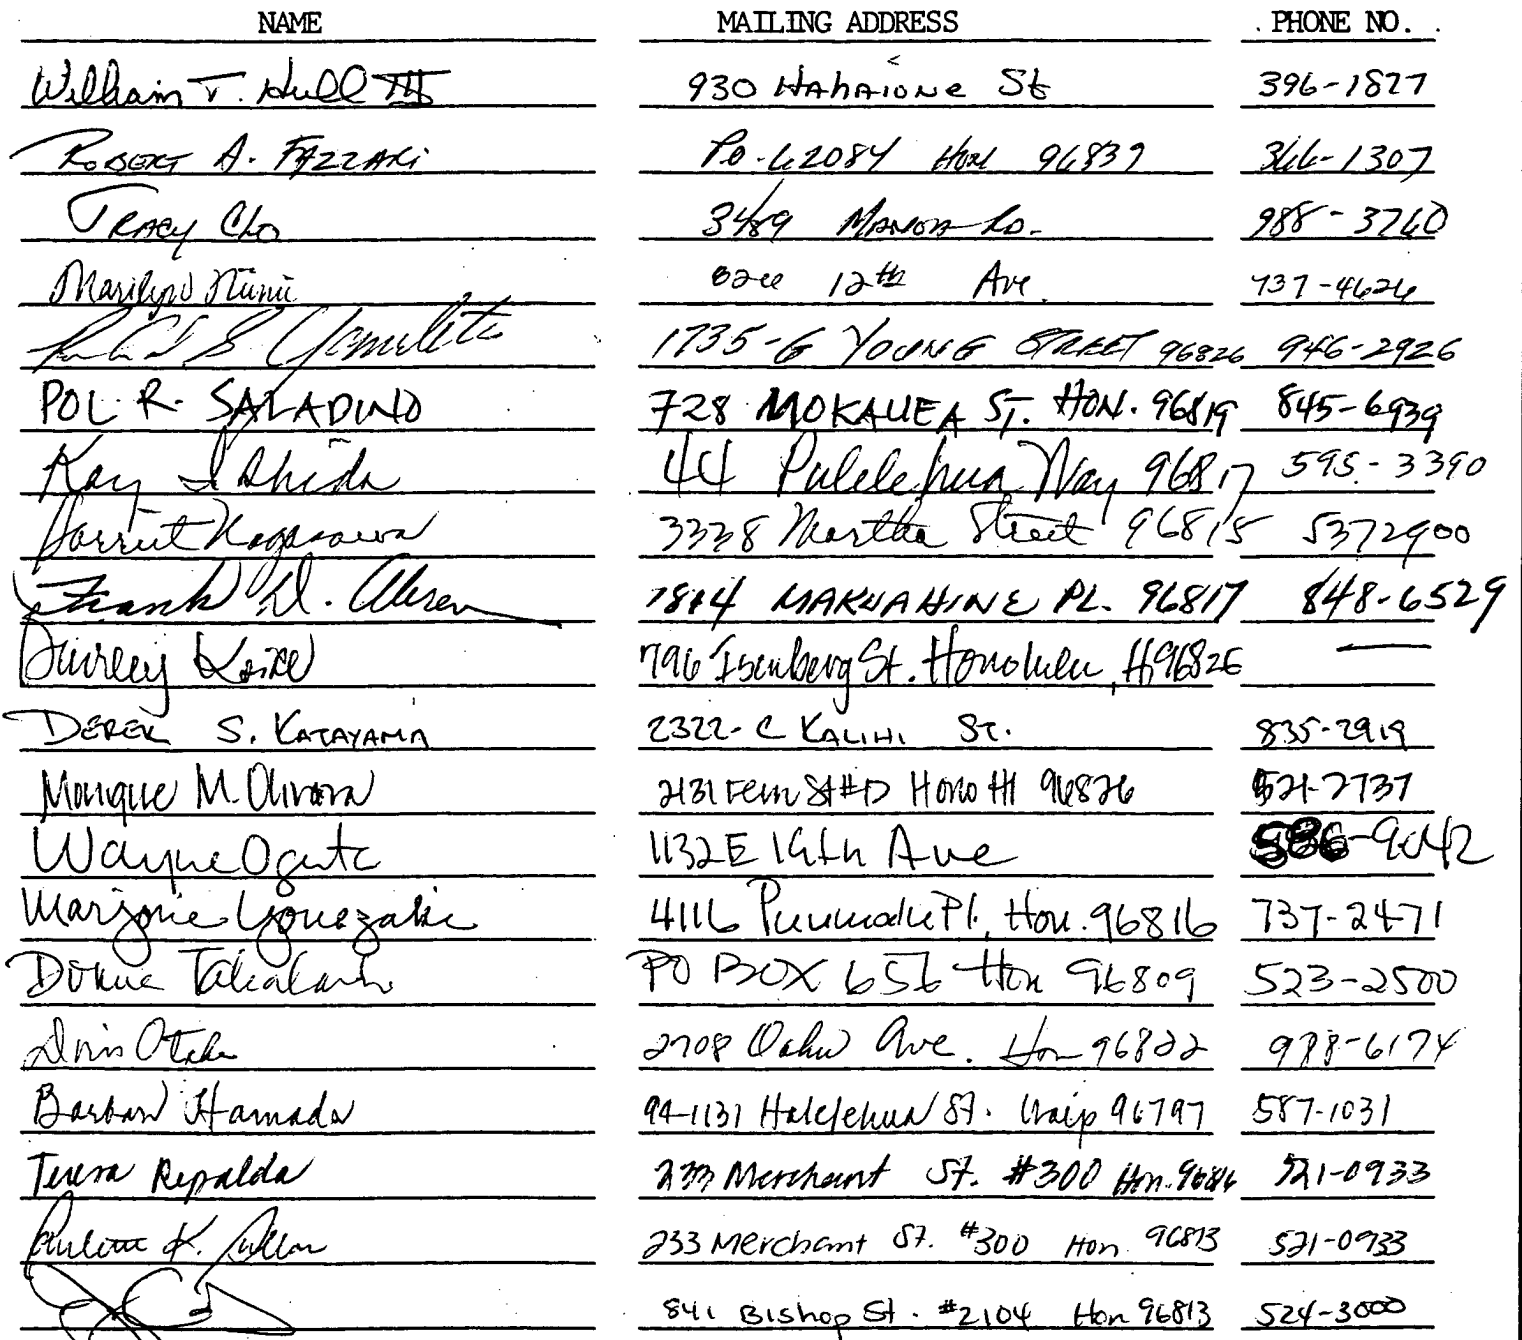 NAME MAILING ADDRESS PHONE NO.
William T. Hull III 930 Hahaione St 396-1827
Robert A. Fazzari P.O. 62084 Hon 96839 366-1307
Tracy Cho 3489 Manoa Rd. 988-3760
Marilyn 12th Ave. 737-4626
1735-G YOUNG STREET 96826 946-2926
POL R. SALADINO 728 MOKAUEA ST. HON. 96819 845-6939
Kay Ishida 44 Pulelehua Way 96817 595-3390
Harriet Nagasawa 3338 Martha Street 96815 5372900
Frank D. MAKUAHINE PL. 96817 848-6529
796 Isenberg St. Honolulu, Hi 96826 —
DEREK S. KATAYAMA 2322-C KALIHI ST. 835-2919
Monique M. 2131 Fern St #D Hono HI 96826 521-2737
Wayne Ogata 1132E 19th Ave
Marjorie Yonezaki 4116 Pl., Hon. 96816 737-2471
PO BOX 656 Hon 96809 523-2500
Doris Otake 2708 Oahu Ave. Hon 96822 988-6174
Barbara Hamada 94-1131 St. Waip 96797 587-1031
Teresa Repalda 233 Merchant St. #300 Hon. 521-0933
K. 233 Merchant St. #300 Hon 96813 521-0933
841 Bishop St. #2104 Hon 96813 524-3000